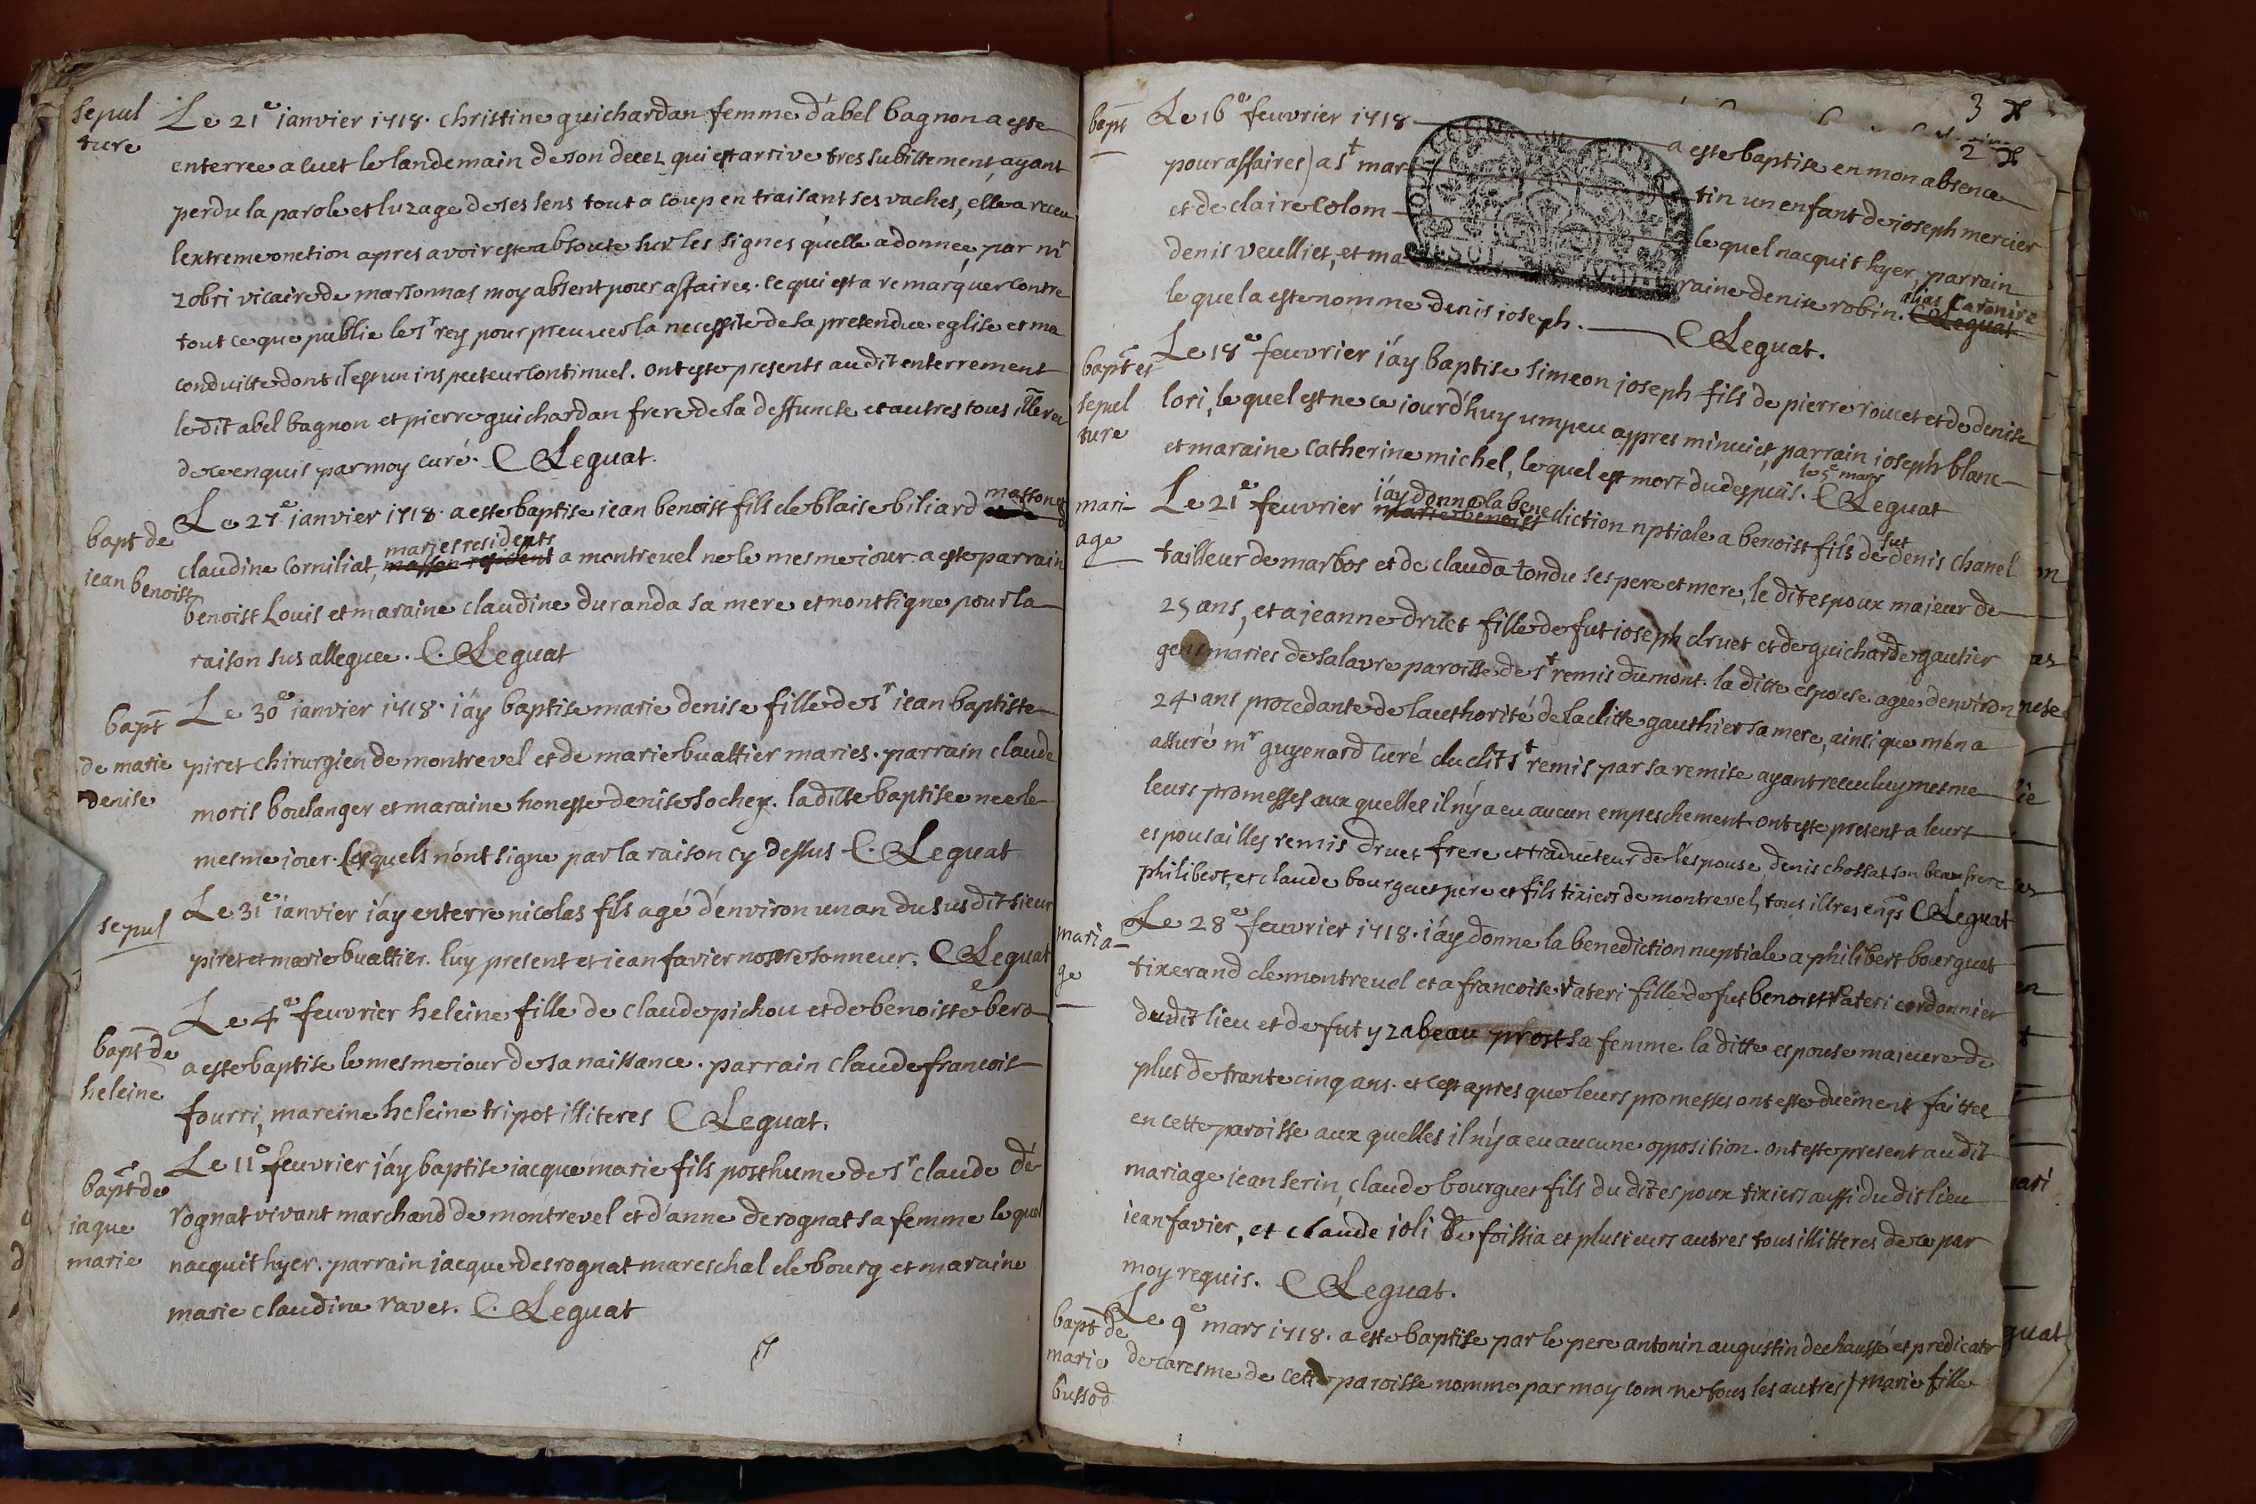 sepul
ture
Le 21e ianvier 1718. christine guichardan femme d'abel bagnon a este
enterree a cuet le landemain de son decez qui est arrive tres subittement, ayant
perdu la parole et luzage de ses sens tout a coup en traisant ses vaches, elle a receu
lextreme onction apres avoir este absoute sur les signes qu'elle a donnee, par mr
zobri vicaire de marsonnas moy absent pour affaires. ce qui est a remarquer contre
tout ce que publie le sr rey pour preuver la necessite de la pretendue eglise et ma
conduitte dont il est un inspecteur continuel. ont este presents audit enterrement
ledit abel bagnon et pierre guichardan frere de la deffuncte et autres tous
de ce enquis par moy curé. C Leguat.
bapt de
iean benoist
Le 27e ianvier 1718. a este baptise iean benoist fils de blaise biliard masson et
claudine Corniliat, maries residents a montrevel ne le mesme iour. a este parrain
benoist Louis et maraine claudine duranda sa mere et nont signe pour la
raison sus alleguee. C. Leguat
bapt
de marie
denise
Le 30e ianvier 1718. i'ay baptise marie denise fille de sr iean baptiste
piret chirurgien de montrevel et de marie buattier maries. parrain claude
moris boulanger et maraine honeste denise sochey. la ditte baptisee nee le
mesme iour. lesquels n'ont signe par la raison cy dessus C. Leguat
sepul
Le 31e ianvier i'ay enterre nicolas fils agé d'environ un an du susdit sieur
piret et marie buattier. luy present et iean favier nostre sonneur. C Leguat
bapt de
heleine
Le 4e feuvrier heleine fille de claude pichou et de benoiste bera
a este baptise le mesme iour de sa naissance. parrain claude francois
fourri, mareine heleine tripot illiteres C Leguat.
bapt de
iaque
marie
Le 11e feuvrier i'ay baptise iacque marie fils posthume de sr claude de
rognat vivant marchand de montrevel et d'anne derognat sa femme lequel
nacquit hyer. parrain iacque desrognat mareschal de bourg et maraine
marie claudine ravet. C. Leguat
3
2
bapt
Le 16e feuvrier 1718 a este baptise en mon absence
pour affaires) a st mar tin un enfant de ioseph mercier
et de claire Colom le quel nacquit hyer, parrain
denis veulliet, et ma raine denise robin. alias Caronire
le quel a este nomme denis ioseph. C Leguat.
bapt et
sepul
ture
Le 18e feuvrier i'ay baptise simeon ioseph fils de pierre roucet et de denise
lori, le quel est ne ce iourd'huy um peu appres minuict, parrain ioseph blanc
et maraine catherine michel, le quel est mort du despuis. le 5e mars C Leguat
mari-
age
Le 21e feuvrier i'ay donne la benediction nptiale a benoist fils de fut denis chanel
tailleur de marbos et de clauda tondu ses pere et mere, le dit espoux majeur de
25 ans, et a jeanne druet fille de fut ioseph druet et de guicharde gautier
gens maries de salavre paroisse de st remis du mont. la ditte espouse agee denviron
24 ans procedante de lauthorité de la ditte gauthier sa mere, ainsi que m'en a
assuré mr guyenard curé du dit st remis par sa remise ayant receu luy mesme
leurs promesses aux quelles il n'y a eu aucun empeschement ont este present a leurs
espousailles remis druet frere et traducteur de l'espouse denis chossat son beau frere
philibert, et claude bourguet pere et fils tixiers de montrevel, tous illres enqs C Leguat
maria-
ge
Le 28e feuvrier 1718. i'ay donne la benediction nuptiale a philibert bourguet
tixerand de montrevel et a francoise rateri fille de fut benoist rateri cordonnier
du dit lieu et de fut yzabeau prost sa femme la ditte espouse majeure de
plus de trante cinq ans. et c'est apres que leurs promesses ont este duement faittes
en cette paroisse aux quelles il n'y a eu aucune opposition. ont este present au dit
mariage iean serin, claude bourguet fils du dit espoux tixiers aussi du dit lieu
iean favier, et claude ioli de foissia et plusieurs autres tous illitteres de ce par
moy requis. C Leguat.
bapt de
marie
bussod
Le 9e mars 1718. a este baptise par le pere antonin augustin dechaussé et predicatr
de caresme de cette paroisse nomme par moy comme tous les autres) marie fille